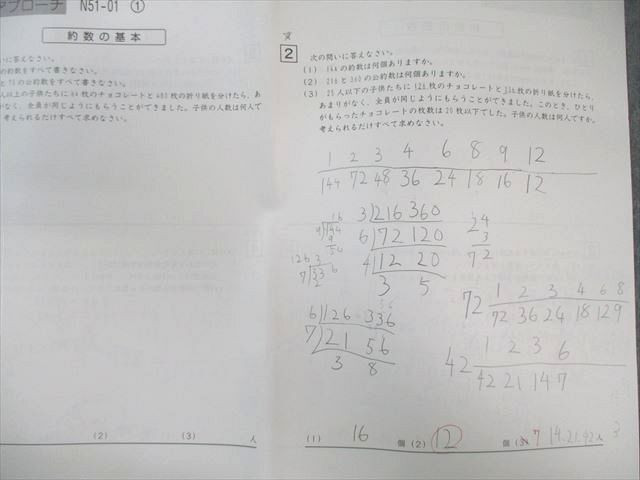 プローチ N51-01 ①
約数の基本
いに答えなさい。
の約数をすべて書きなさい。
と 75 の公約数をすべて書きなさい。
人以上の子供たちに 84 枚のチョコレートと 480 枚の折り紙を分けたら、あ
がなく、全員が同じようにもらうことができました。子供の人数は何人で
考えられるだけすべて求めなさい。
(2) (3) 人
2
次の問いに答えなさい。
(1) 144 の約数は何個ありますか。
(2) 216 と 360 の公約数は何個ありますか。
(3) 25 人以下の子供たちに 126 枚のチョコレートと 336 枚の折り紙を分けたら、
あまりがなく、全員が同じようにもらうことができました。このとき、ひとり
がもらったチョコレートの枚数は 20 枚以下でした。子供の人数は何人ですか。
考えられるだけすべて求めなさい。
1 2 3 4 6 8 9 12
144 72 48 36 24 18 16 12
3 216 360
6 72 120
4 12 20
3 5
24
3
72
72 1 2 3 4 6 8
72 36 24 18 12 9
6 126 336
7 21 56
3 8
42 1 2 3 6
42 21 14 7
(1) 16 個 (2) 12 個 (3) 7 14.21.42 人